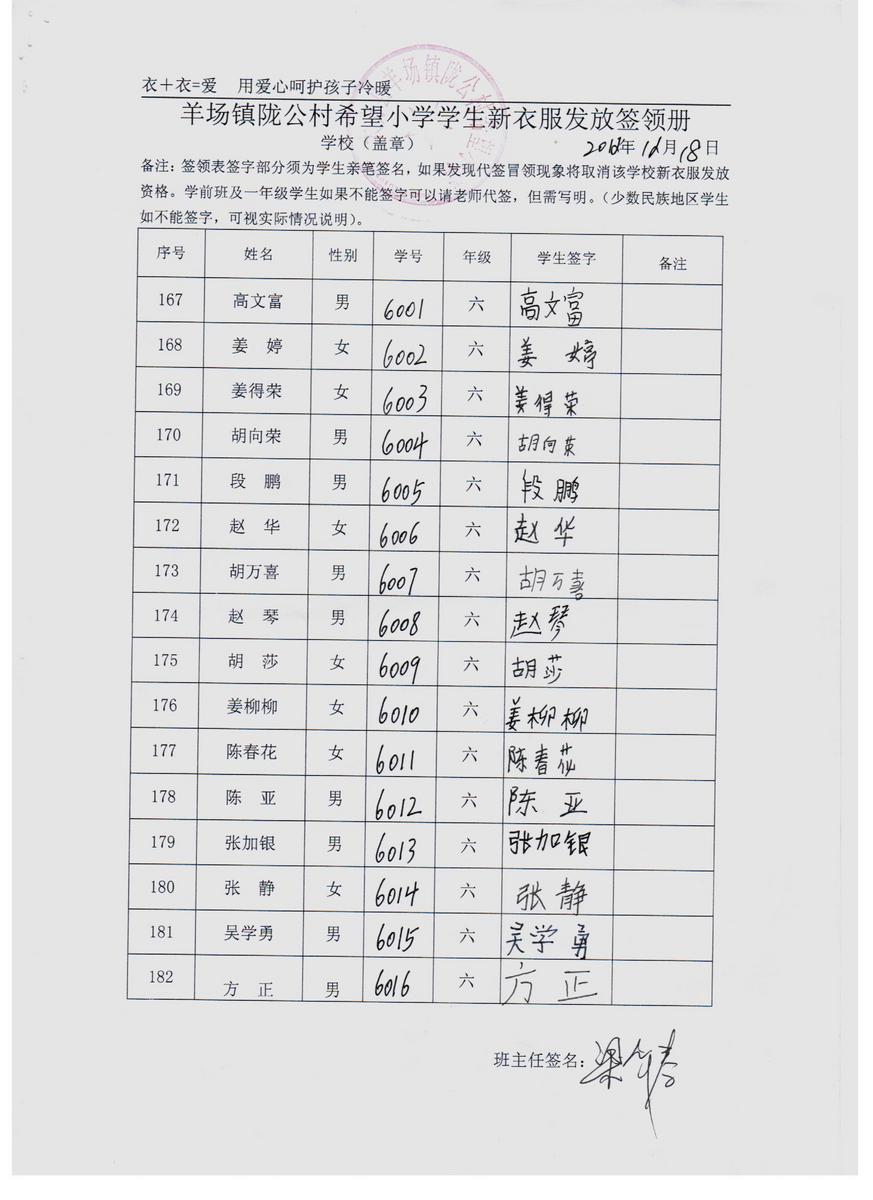 衣＋衣=爱 用爱心呵护孩子冷暖
羊场镇陇公村希望小学学生新衣服发放签领册
学校（盖章） 年12月18日
备注：签领表签字部分须为学生亲笔签名，如果发现代签冒领现象将取消该学校新衣服发放
资格。学前班及一年级学生如果不能签字可以请老师代签，但需写明。（少数民族地区学生
如不能签字，可视实际情况说明）。
序号 姓名 性别 学号 年级 学生签字 备注
167 高文富 男 6001 六 高文富
168 姜 婷 女 6002 六 姜 婷
169 姜得荣 女 6003 六 姜得荣
170 胡向荣 男 6004 六 胡向荣
171 段 鹏 男 6005 六 段鹏
172 赵 华 女 6006 六 赵华
173 胡万喜 男 6007 六 胡万喜
174 赵 琴 男 6008 六 赵琴
175 胡 莎 女 6009 六 胡莎
176 姜柳柳 女 6010 六 姜柳柳
177 陈春花 女 6011 六 陈春花
178 陈 亚 男 6012 六 陈 亚
179 张加银 男 6013 六 张加银
180 张 静 女 6014 六 张静
181 吴学勇 男 6015 六 吴学勇
182 方 正 男 6016 六 方 正
班主任签名：